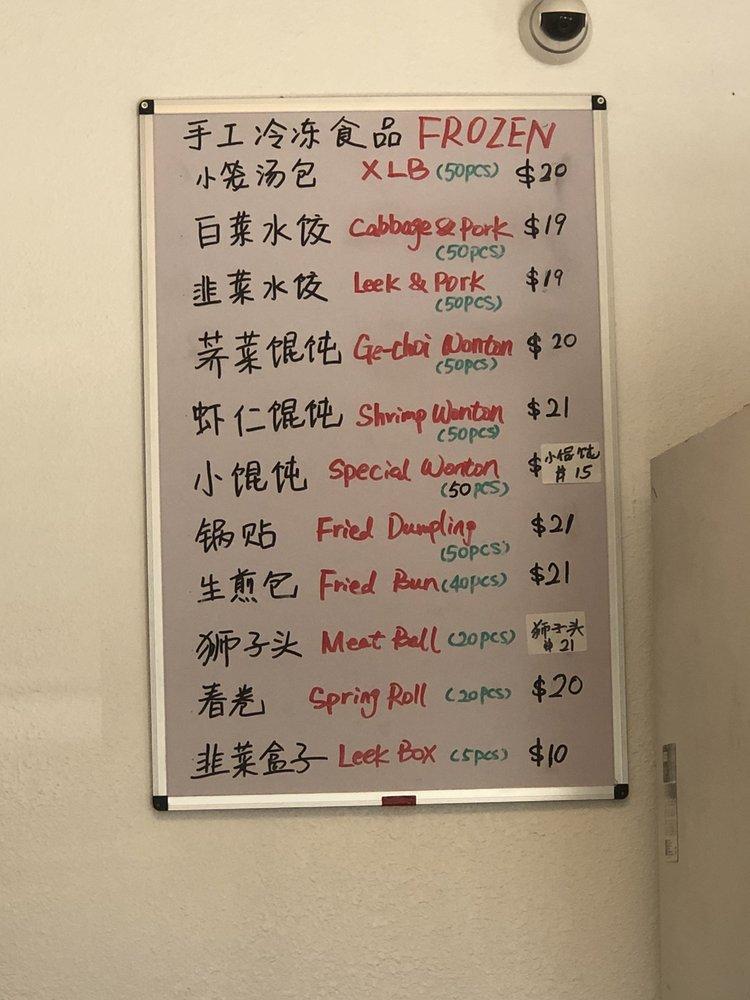 手工冷冻食品 FROZEN
小笼汤包 XLB (50pcs) $20
白菜水饺 Cabbage & Pork $19
(50pcs)
韭菜水饺 Leek & Pork $19
(50pcs)
荠菜馄饨 Ge-choi Wonton $20
(50pcs)
虾仁馄饨 Shrimp Wonton $21
(50pcs)
小馄饨 Special Wonton $ 小馄饨
(50pcs) $15
锅贴 Fried Dumpling $21
(50pcs)
生煎包 Fried Bun (40pcs) $21
狮子头 Meat Ball (20pcs) 狮子头
$21
春卷 Spring Roll (20pcs) $20
韭菜盒子 Leek Box (5pcs) $10